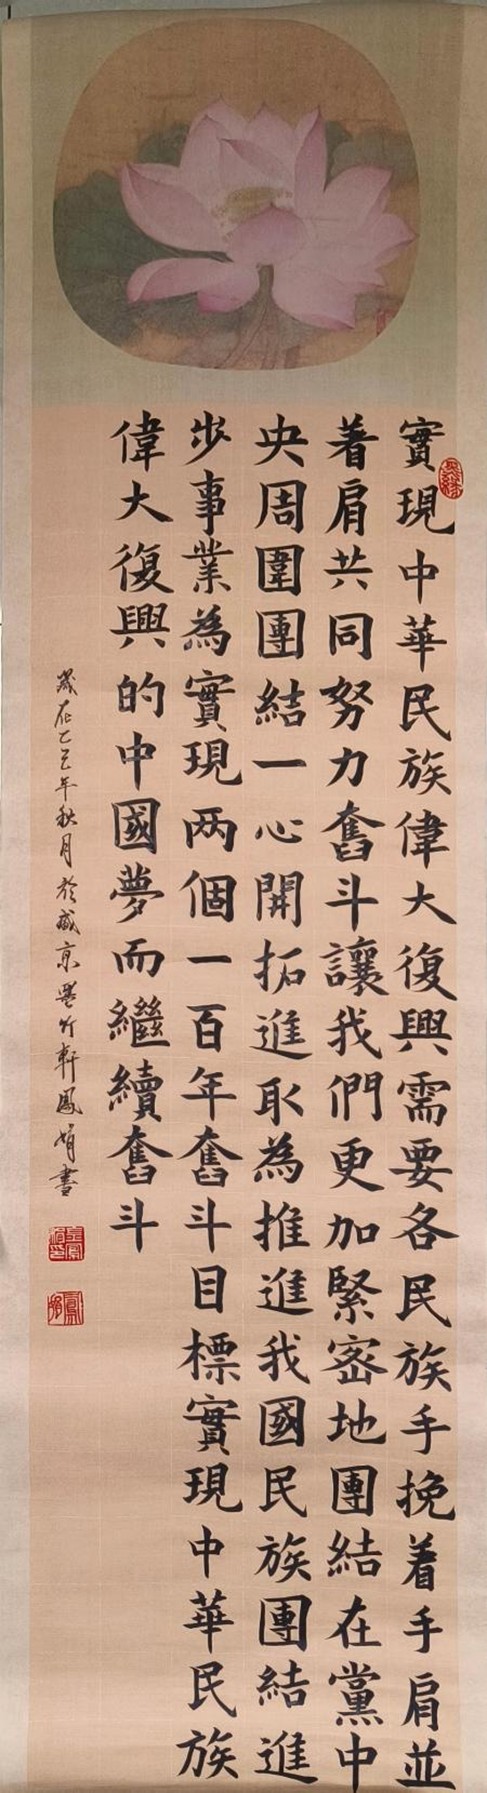 實現中華民族偉大復興需要各民族手挽着手肩並
着肩共同努力奮斗讓我們更加緊密地團結在黨中
央周圍團結一心開拓進取為推進我國民族團結進
步事業為實現两個一百年奮斗目標實現中華民族
偉大復興的中國夢而繼續奮斗
歲在乙巳年秋月於盛京墨竹軒鳳娟書